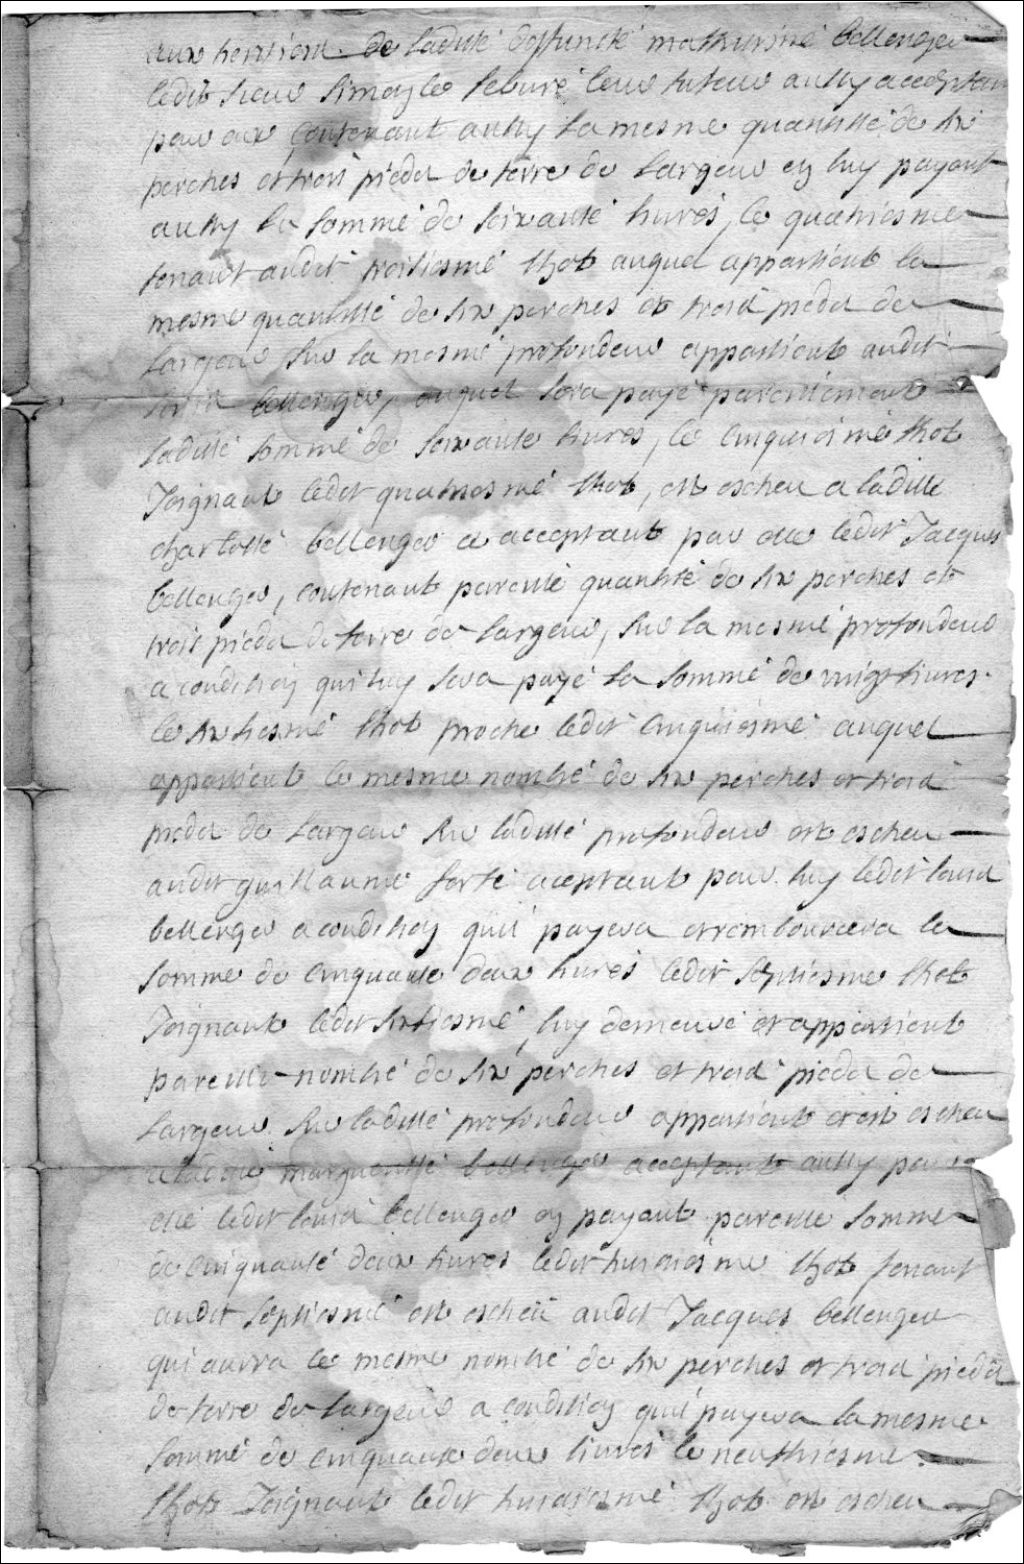 aux heritiers de laditte deffuncte mathurine bellenger
ledit sieur simon le febure leur tuteur aussy acceptant
pour eux contenant aussy la mesme quantité de six
perches et trois pieds de terre de largeur en luy payant
aussy la somme de soixante liures, le quatriesme
tenant audit troisiesme lhot auquel appartient la
mesme quantitté de six perches et trois pieds de
largeur sur la mesme profondeur appartient audit
bellenger, auquel sera payé pareillement
laditte somme de soixante liures, le cinquiesme lhot
Joignant ledit quatriesme lhot, est escheu a laditte
charlotte bellenger ce acceptant pour elle ledit Jacques
bellenger, contenant pareille quantité de six perches et
trois pieds de terre de largeur, sur la mesme profondeur
a condition qui luy sera payé la somme de vingt liures.
le sixiesme lhot proche ledit cinquiesme auquel
appartient le mesme nombre de six perches et trois
pieds de largeur sur laditte profondeur est escheu
audit guillaume ferté aceptant pour luy ledit louis
bellenger a condition quil payera et rembourcera la
somme de cinquante deux liures ledit septiesme lhot
Joignant ledit sixtiesme, luy demeure et appartient
pareille nombre de six perches et trois pieds de
largeur sur laditte profondeur appartient et est escheu
a laditte margueritte bellenger acceptant aussy pour
elle ledit louis bellenger en payant pareille somme
de cinquante deux liures ledit huictiesme lhot tenant
audit septiesme est escheu audit Jacques bellenger
qui aurra le mesme nombre de six perches et trois pieds
de terre de largeur a condition quil payera la mesme
somme de cinquante deux liures le neufhiesme
lhot Joignant ledit huictiesme lhot est escheu